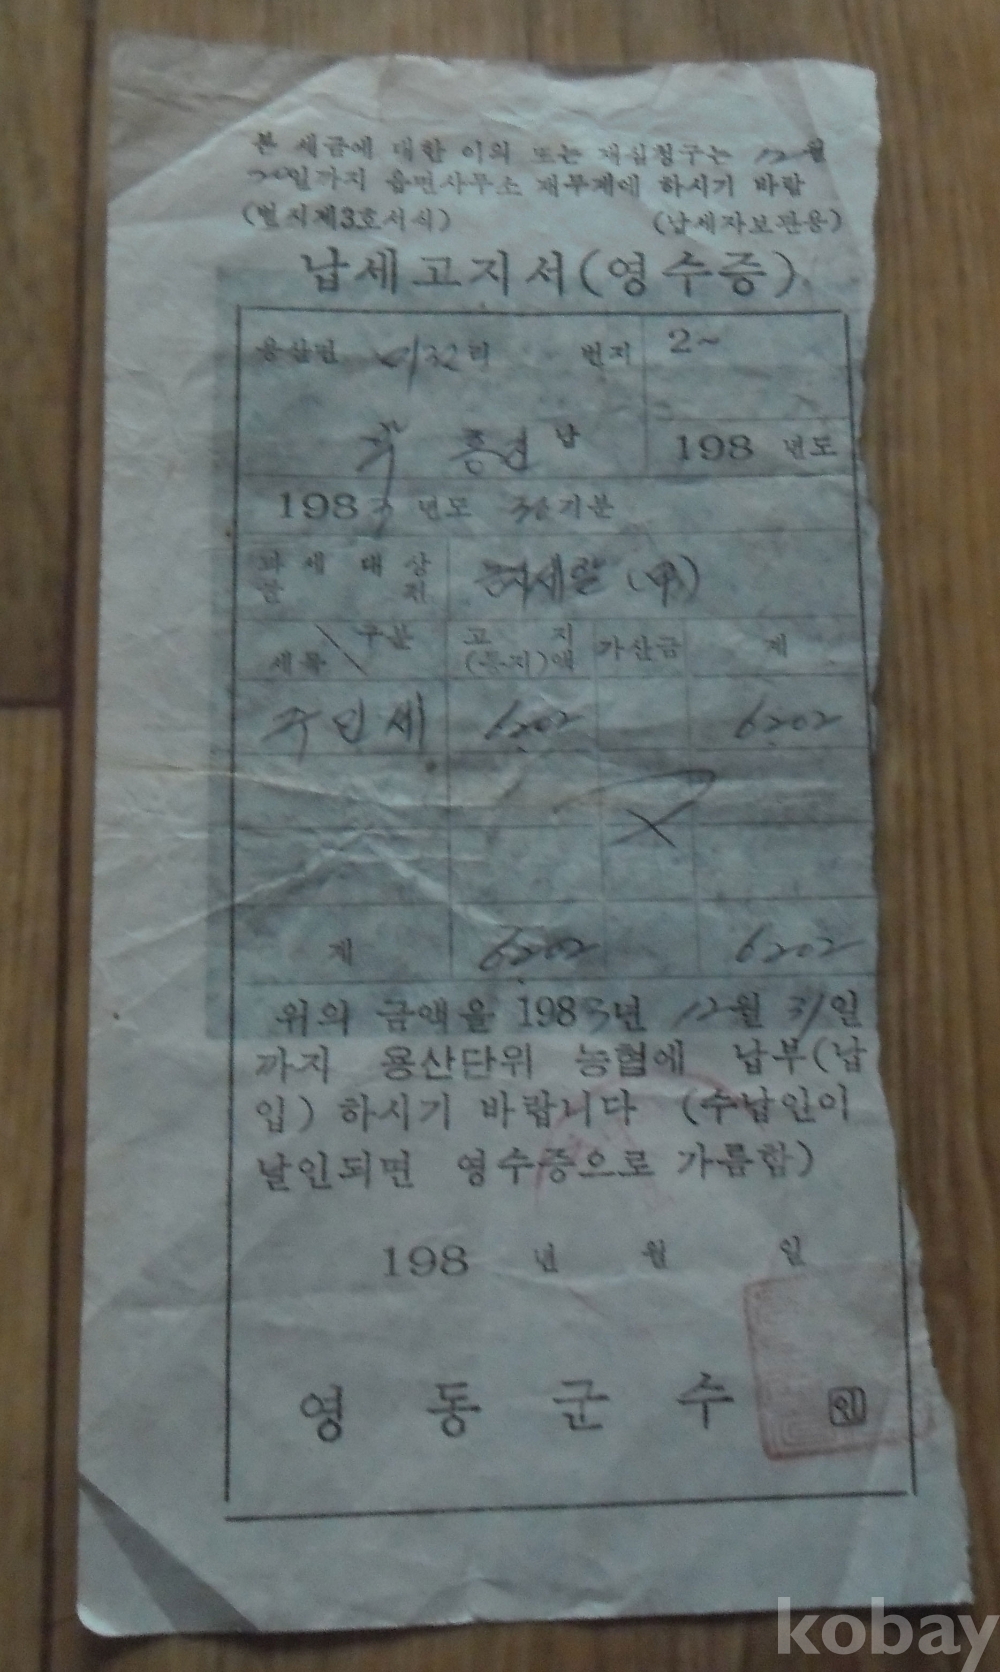 본 세금에 대한 이의 또는 재심청구는 12월
일까지 읍면사무소 재무계에 하시기 바람
(별지제3호서식) (납세자보관용)
납세고지서(영수증)
용산면 리 번지 2~
납
198 년도
1983년도 기분
과세대상
구분
세목
고지
(통지)액
가산금
계
주민세 6202 6202
계 6202 6202
위의 금액을 1983년 12월 31일
까지 용산단위 농협에 납부(납
입) 하시기 바랍니다 (수납인이
날인되면 영수증으로 가름함)
198 년 월 일
영동군수 인
kobay